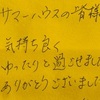 サマーハウスの皆様
気持ち良く
ゆったりと過せました
ありがとうございました